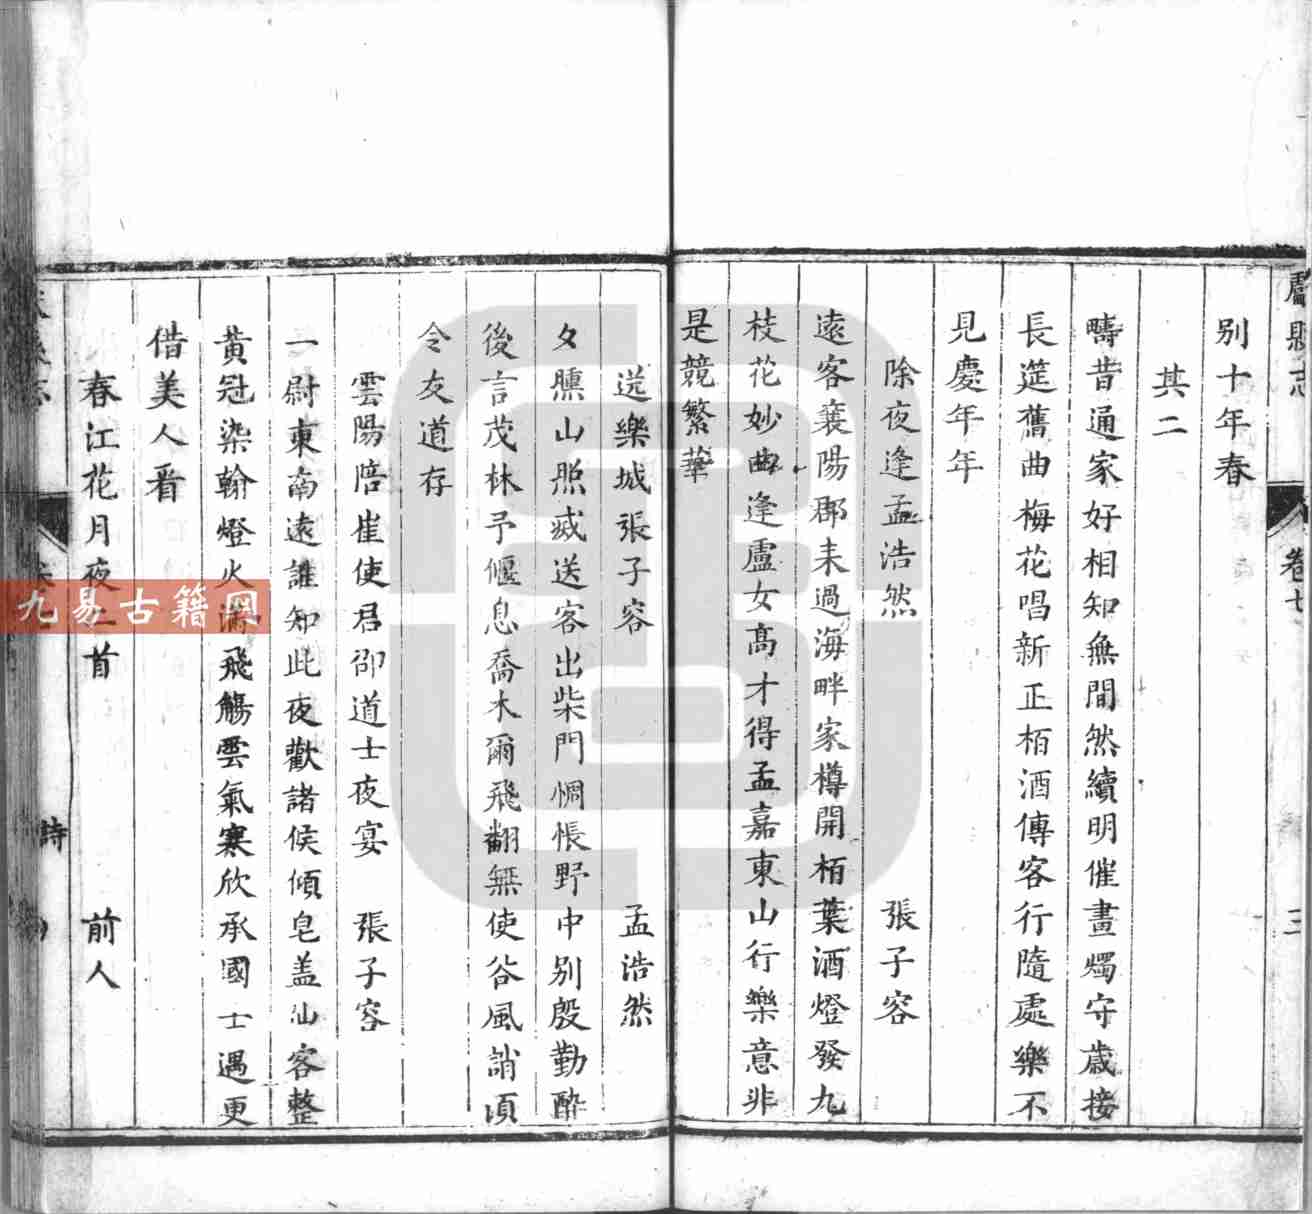 别十年春
其二
疇昔通家好相知無間然續明催畫燭守歲接
長筵舊曲梅花唱新正栢酒傳客行隨處樂不
見慶年年
除夜逢孟浩然 張子容
遠客襄陽郡来過海畔家樽開栢葉酒燈發九
枝花妙曲逢盧女髙才得孟嘉東山行樂意非
是競繁華
送樂城張子容 孟浩然
夕曛山照滅送客出柴門惆悵野中别殷勤醉
後言茂林予偃息喬木爾飛翻無使谷風誚湏
令友道存
雲陽陪崔使君邵道士夜宴 張子容
一尉東南遠誰知此夜歡諸侯傾皂盖仙客整
黃冠染翰燈火滿飛觴雲氣寒欣承國士遇更
借美人看
春江花月夜二首 前人
卷七
三
詩
九易古籍網